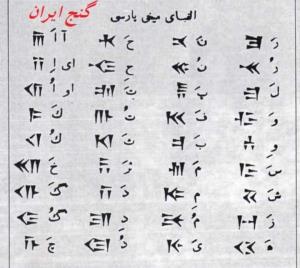 الفبای میخی پارسی گنج ایران
آ اَ 𐎠 حَ 𐏃 نَ 𐎴 رَ 𐎼
ای اِ 𐎡 نُ 𐎵 رُ 𐎽
او اُ 𐎢 تَ 𐎫 پَ 𐎱 لَ 𐎾
کَ 𐎣 تُ 𐎬 فَ 𐎳 وَ 𐎺
کُ 𐎤 بَ 𐎲 وِ 𐎻
خَ 𐎧 مَ 𐎶 سَ 𐎿
گَ 𐎥 دَ 𐎭 مِ 𐎷 شَ 𐏁
گُ 𐎦 دِ 𐎮 مُ 𐎸 زَ 𐏀
چَ 𐎨 دُ 𐎯 یَ 𐎹